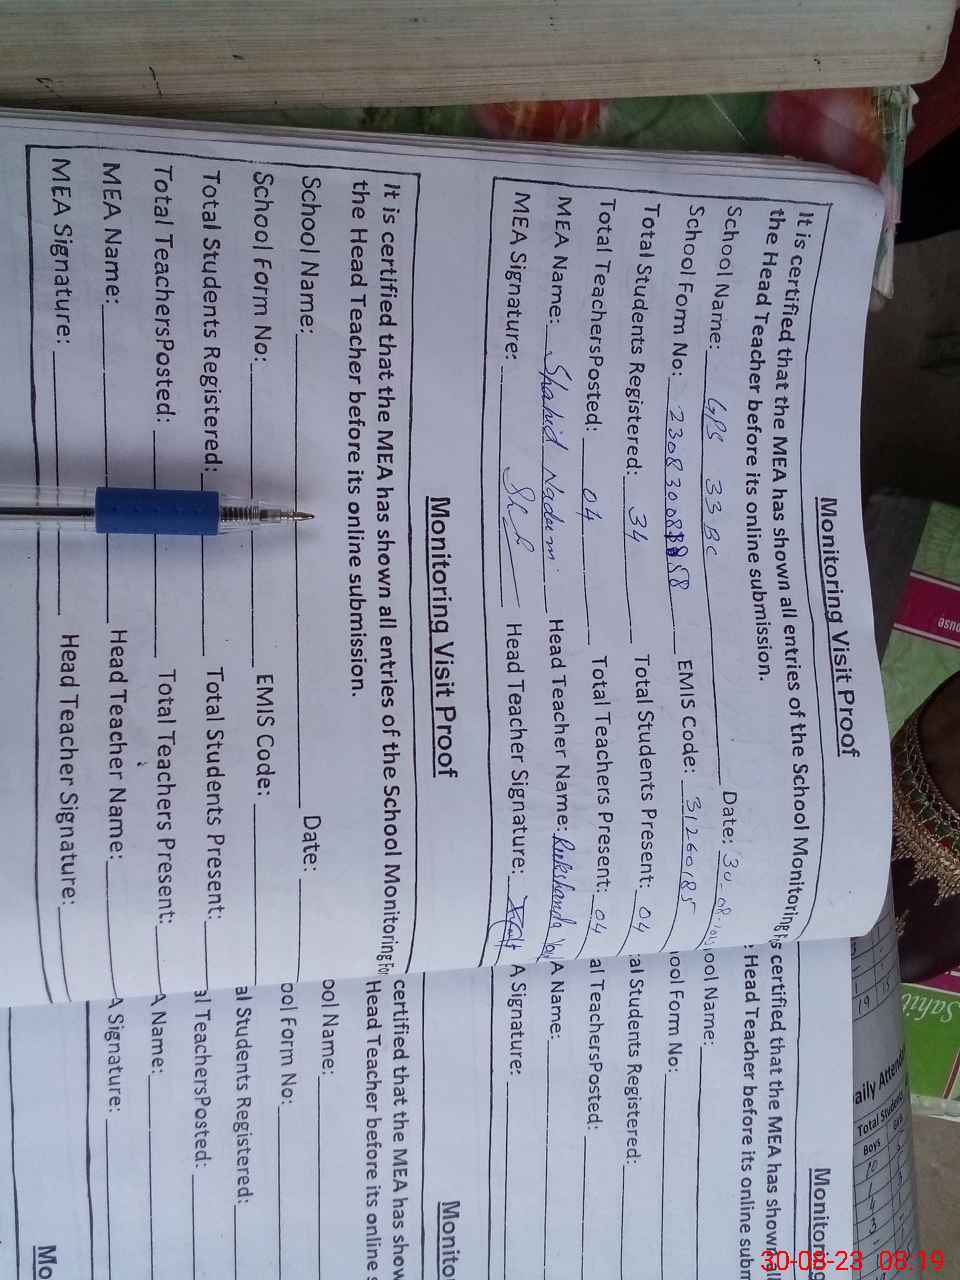 Monitoring Visit Proof
It is certified that the MEA has shown all entries of the School Monitoring
the Head Teacher before its online submission.
School Name: GPS 33 BC Date: 30-08-
School Form No: EMIS Code: 31260185
Total Students Registered: 34 Total Students Present: 04
Total TeachersPosted: 04 Total Teachers Present: 04
MEA Name: Shahid Nadeem Head Teacher Name: Rukshanda
MEA Signature: Head Teacher Signature:
Monitoring Visit Proof
It is certified that the MEA has shown all entries of the School Monitoring For
the Head Teacher before its online submission.
School Name: Date:
School Form No: EMIS Code:
Total Students Registered: Total Students Present:
Total TeachersPosted: Total Teachers Present:
MEA Name: Head Teacher Name:
MEA Signature: Head Teacher Signature:
Monitoring
s certified that the MEA has shown all
Head Teacher before its online subm
ool Name:
ool Form No:
al Students Registered:
al TeachersPosted:
A Name:
A Signature:
Monito
certified that the MEA has show
Head Teacher before its online s
ool Name:
ool Form No:
al Students Registered:
al TeachersPosted:
A Name:
A Signature:
Mo
ouse
Sahil
aily Atten
Total Students
Boys
30-08-23 08:19